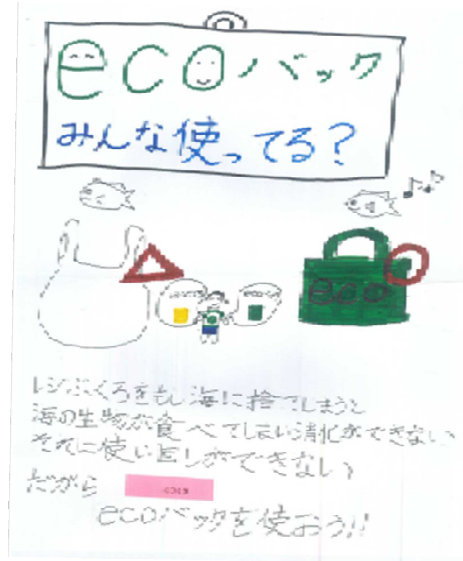 ecoバック
みんな使ってる?
eco
レジぶくろをもし海に捨てしまうと
海の生物が食べてしまい消化ができない
それに使い回しができない
だから
ecoバックを使おう!!